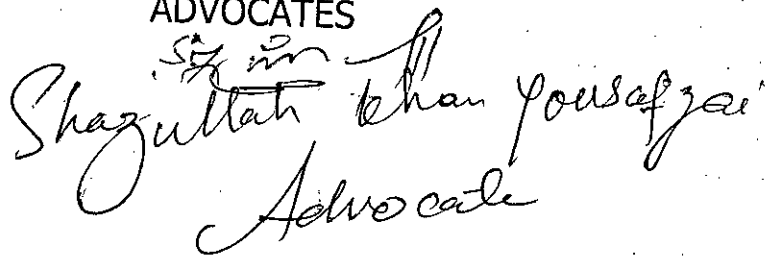 ADVOCATES
Shazullah Khan Yousafzai
Advocate